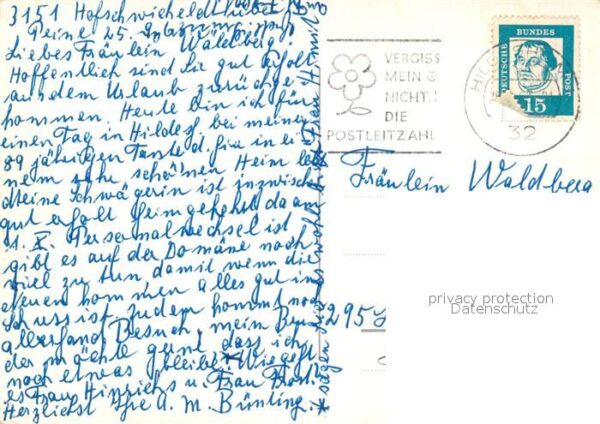 3151 Hofschwicheldt über
Peine 25.
Liebes Fräulein Waldberg!
Hoffentlich sind Sie gut erholt
aus dem Urlaub zurückge-
kommen. Heute bin ich für
einen Tag in Hildesh. bei meiner
89 jährigen Tante d. hier in ei
nem sehr schönen Heim lebt
Meine Schwägerin ist inzwisch
gut erholt heimgekehrt da am
1. X. Personalwechsel ist
gibt es auf der Domäne noch
viel zu tun damit wenn die
neuen kommen alles gut im
Schuss ist. zudem kommt noch
allerhand Besuch, mein Bru
der möchte gern, dass ich
noch etwas bleibe. Wie geht
es Frau Hinrichs u. Frau
Herzlichst Ihre A. M. Bünting.
VERGISS
MEIN
NICHT
DIE
POSTLEITZAHL
HILD
32
DEUTSCHE BUNDES POST
15
Fräulein Waldberg
295
privacy protection
Datenschutz